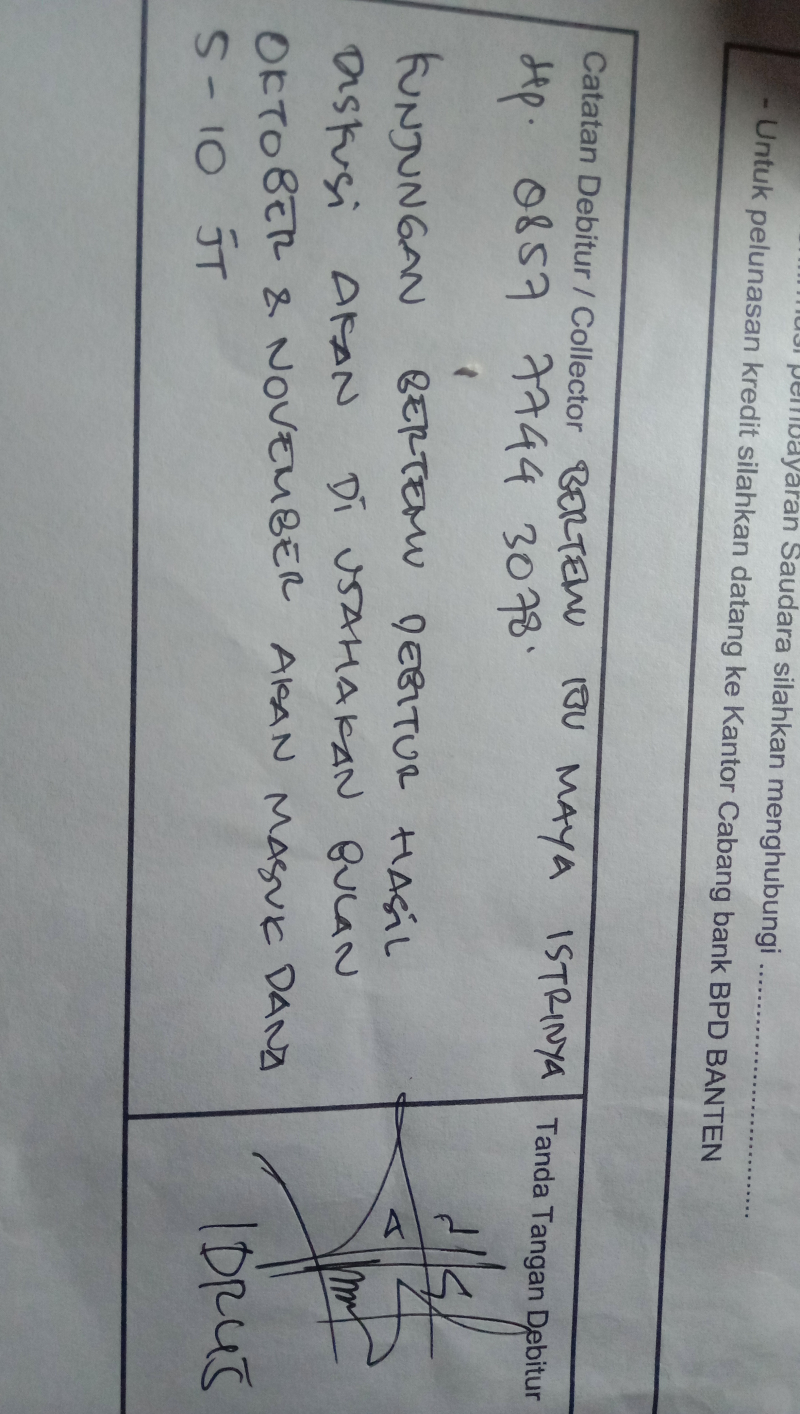 pembayaran Saudara silahkan menghubungi ..............................
- Untuk pelunasan kredit silahkan datang ke Kantor Cabang bank BPD BANTEN
Catatan Debitur / Collector BERTEMU IBU MAYA ISTRINYA
Hp. 0857 7744 3078.
KUNJUNGAN BERTEMU DEBITUR HASIL
DISKUSI AKAN DI USAHAKAN BULAN
OKTOBER & NOVEMBER AKAN MASUK DANA
5-10 JT
Tanda Tangan Debitur
IDRUS